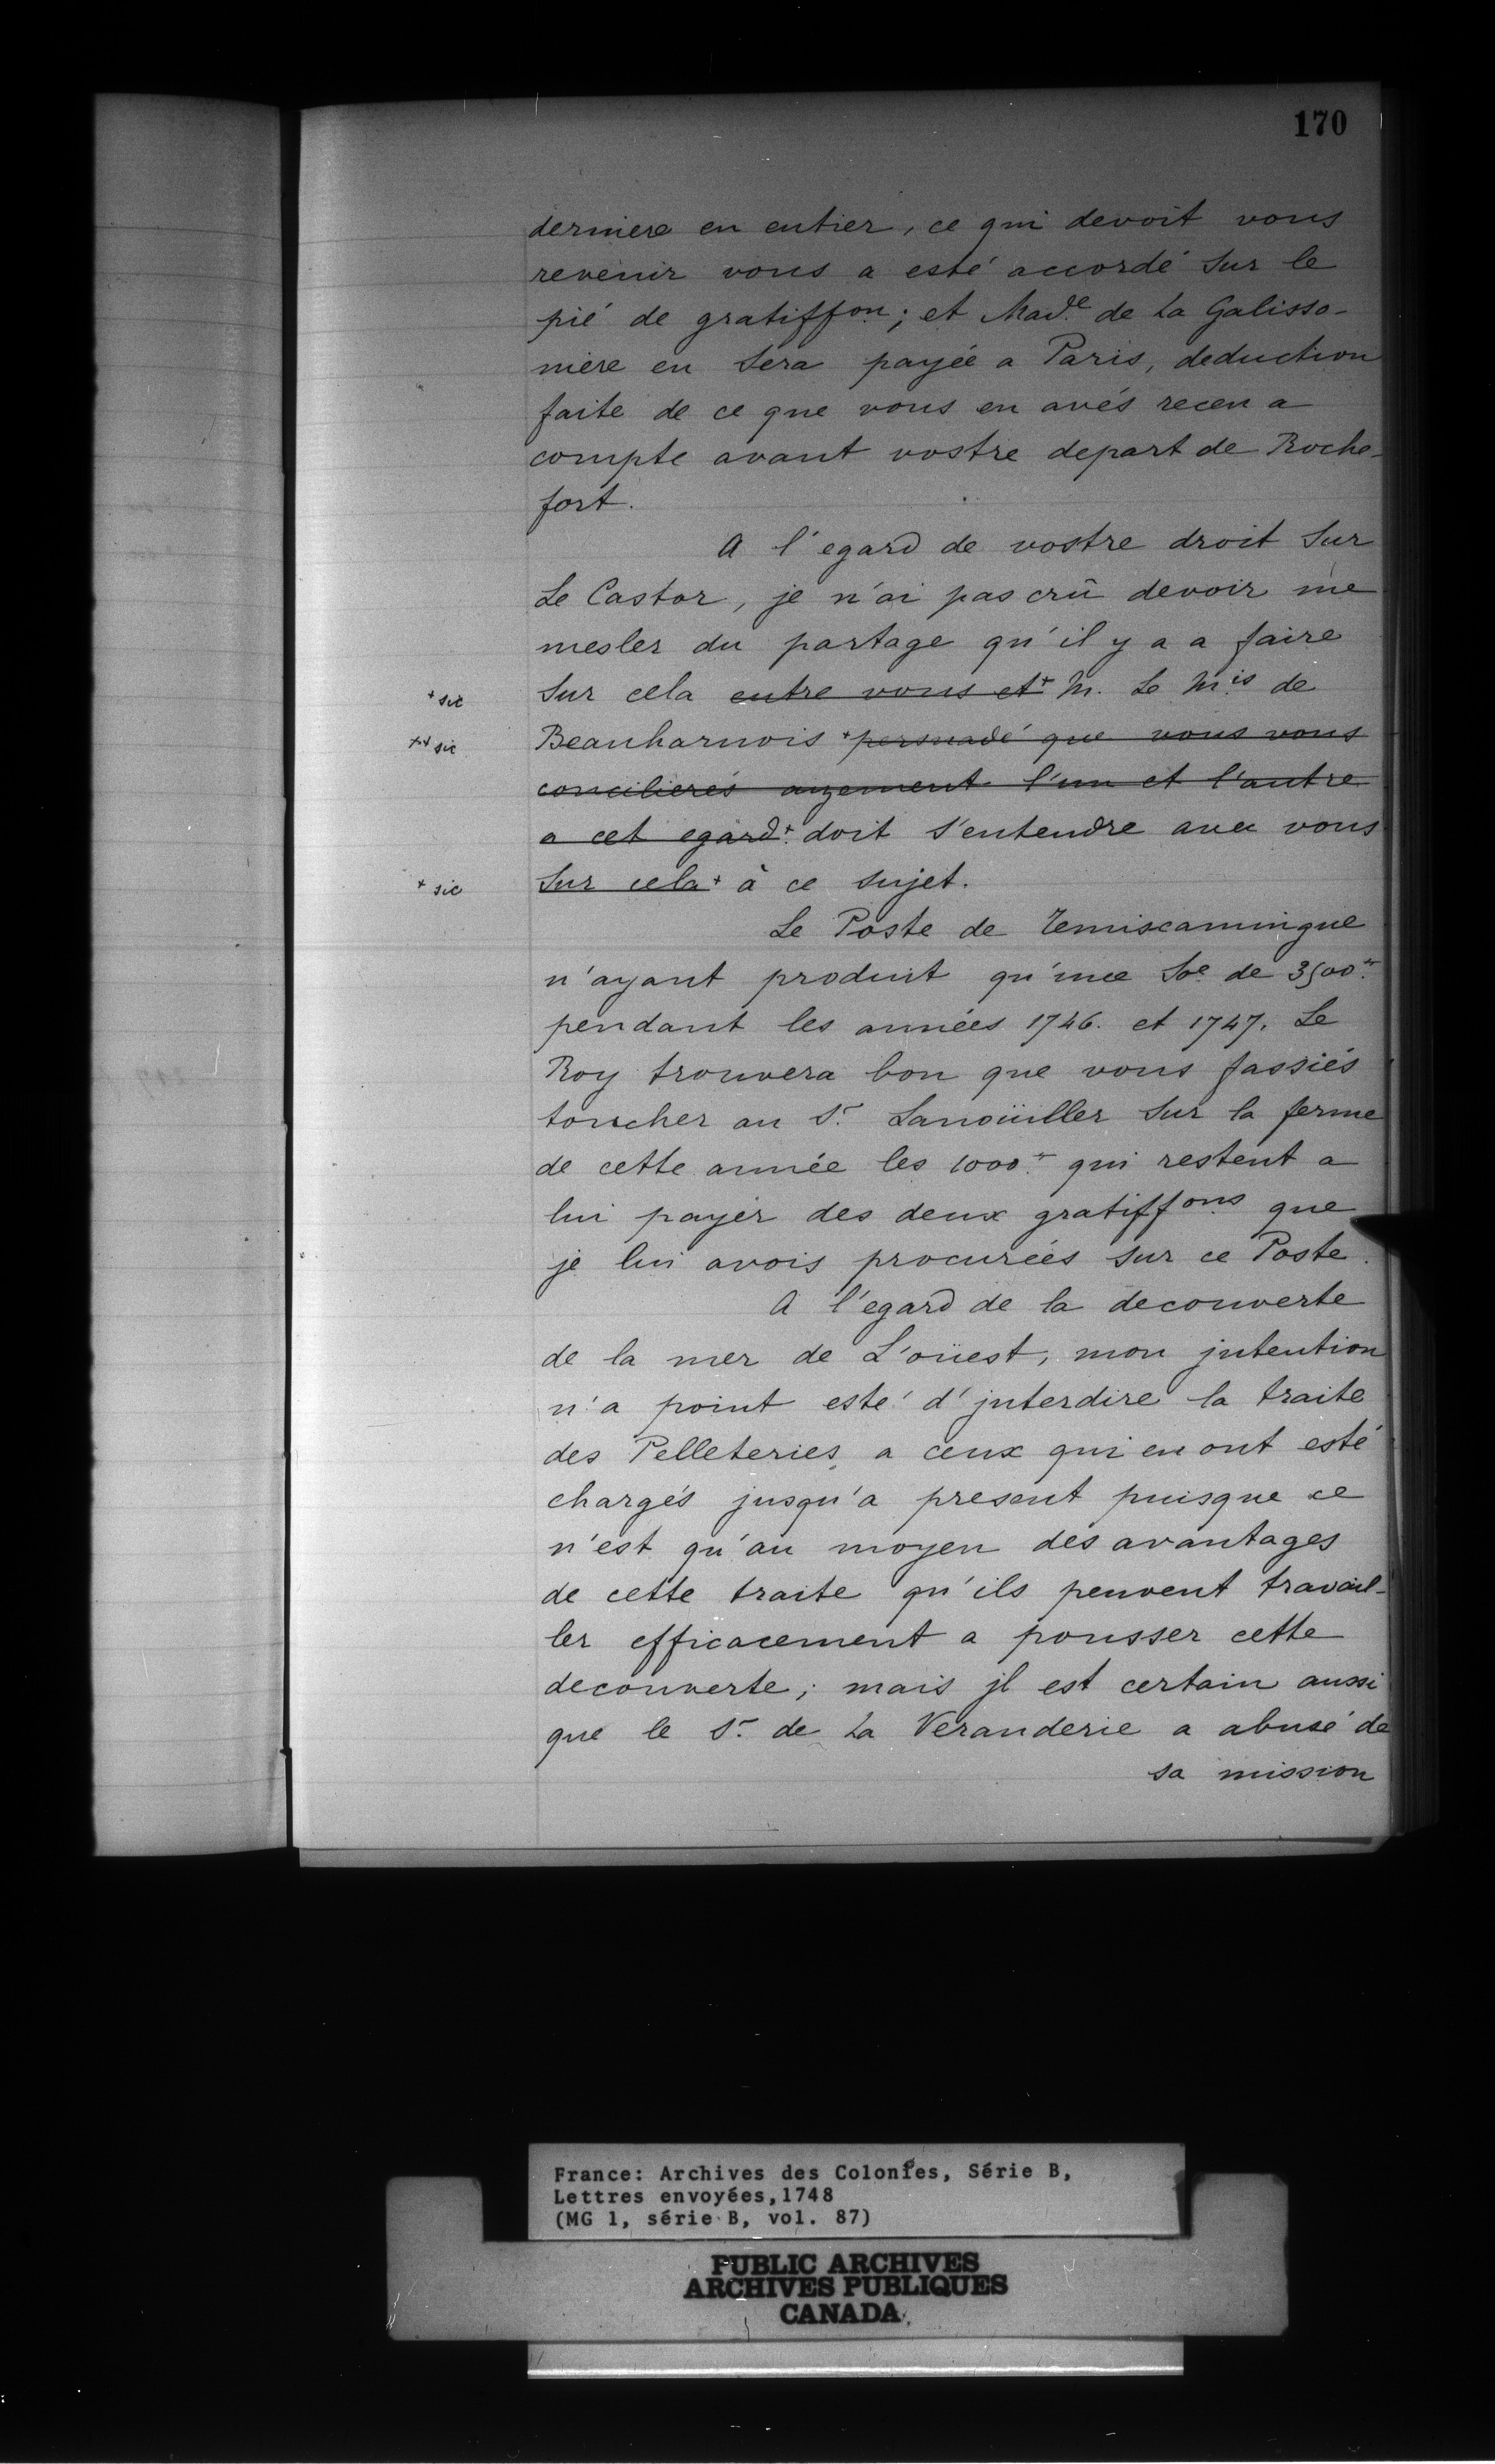 170
derniere en entier, ce qui devoit vous
revenir vous a esté accordé sur le
pié de gratiffon; et Made de La Galisso-
niere en sera payée a Paris, deduction
faite de ce que vous en avés receu a
compte avant vostre depart de Roche-
fort.
A l'egard de vostre droit sur
Le Castor, je n'ai pas crû devoir me
mesler du partage qu'il y a a faire
+ sic
sur cela entre vous et+ M. Le Mis de
++ sic
Beauharnois +persuadé que vous vous
concilierés aizement l'un et l'autre
a cet egard+. doit s'entendre avec vous
+ sic
sur cela+ à ce sujet.
Le Poste de Temiscamingue
n'ayant produit qu'une Soe de 3500tt
pendant les années 1746. et 1747. Le
Roy trouvera bon que vous fassiés
toucher au Sr. Lanoüiller sur la ferme
de cette année les 1000tt qui restent a
lui payer des deux gratiffons que
je lui avois procurées sur ce Poste.
A l'egard de la decouverte
de la mer de L'oüest, mon jntention
n'a point esté d'jnterdire la traite
des Pelleteries a ceux qui en ont esté
chargés jusqu'a present puisque ce
n'est qu'au moyen des avantages
de cette traite qu'ils peuvent travail-
ler efficacement a pousser cette
decouverte; mais jl est certain aussi
que le Sr. de La Veranderie a abusé de
sa mission
France: Archives des Colonies, Série B,
Lettres envoyées,1748
(MG 1, série B, vol. 87)
PUBLIC ARCHIVES
ARCHIVES PUBLIQUES
CANADA